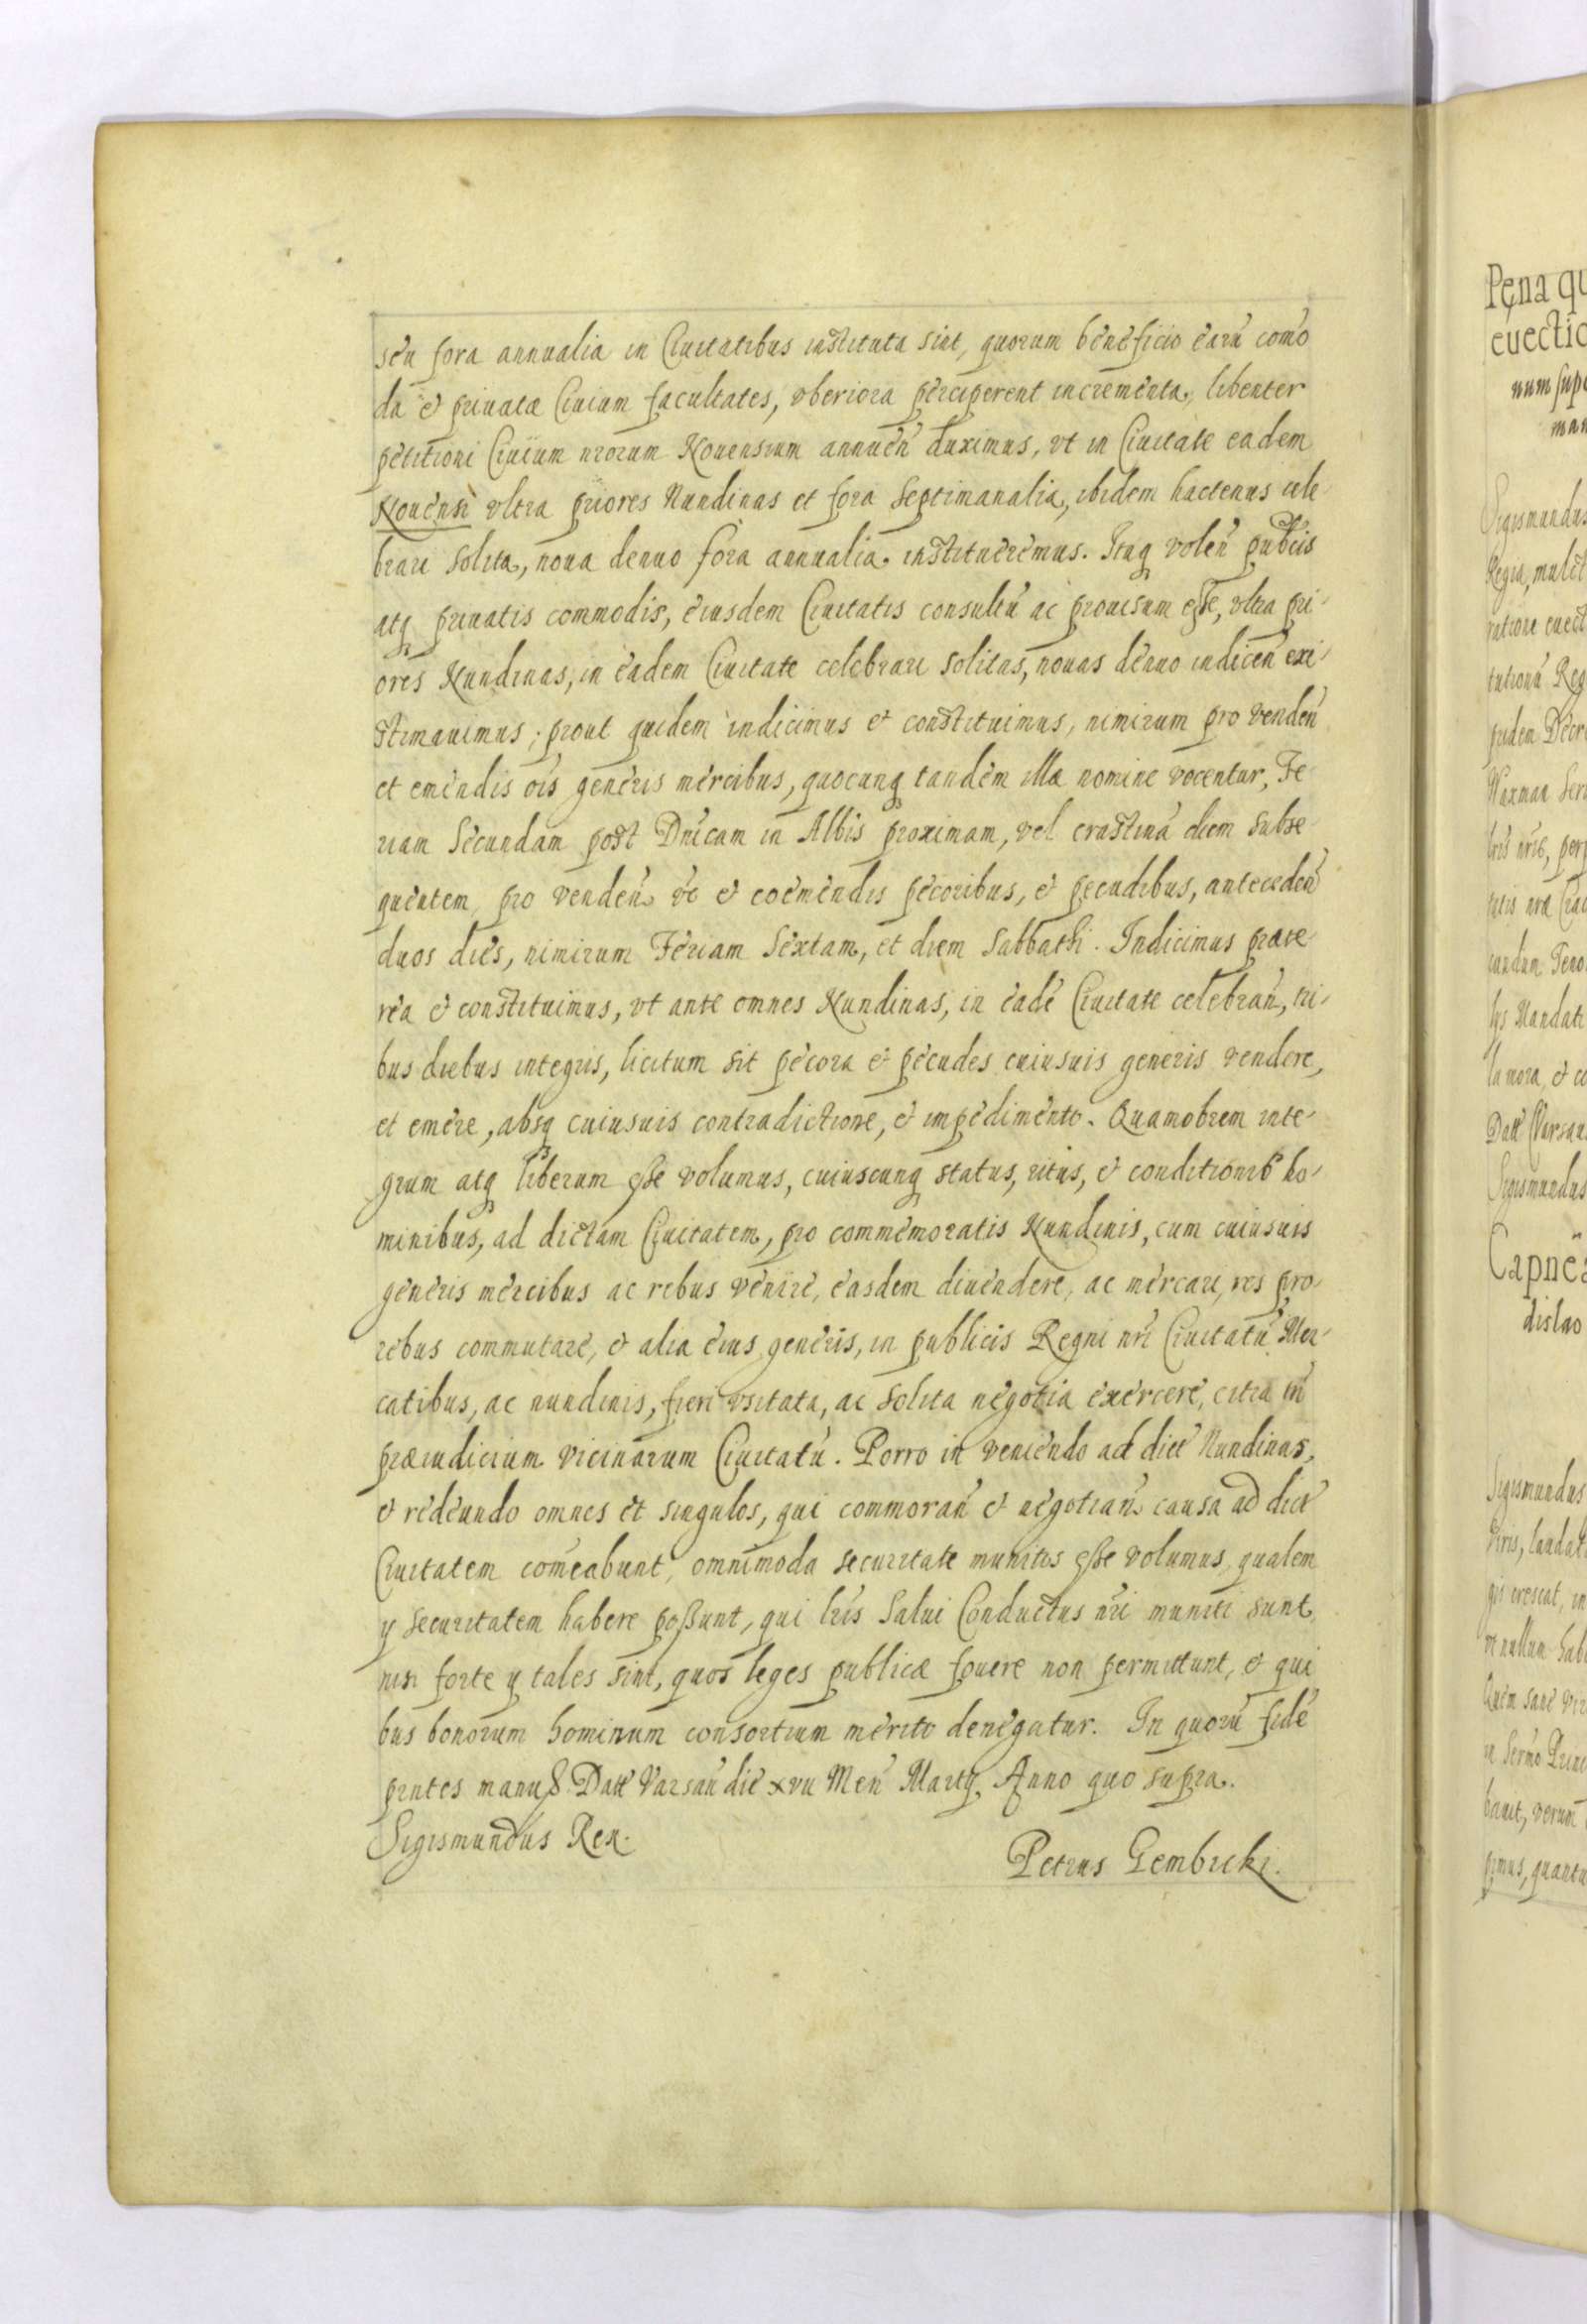 seu fora annualia in Ciuitatibus instituta sint, quorum beneficio earũ com̃o
da et priuatæ Ciuium facultates, vberiora perciperent incrementa, libenter
petitioni Ciuium nrorum Nouensium annueñ duximus, vt in Ciuitate eadem
Nouensi vltra priores Nundinas et fora Septimanalia, ibidem hactenus cele-
brari solita, noua denuo fora annualia institueremus. Itaq voleñ publcis
atq priuatis commodis, eiusdem Ciuitatis consultũ ac prouisum esse, vltra pri-
ores Nundinas, in eadem Ciuitate celebrari solitas, nouas denuo indiceñ exi-
stimauimus; prout quidem indicimus et constituimus, nimirum pro vendeñ
et emendis ois generis mercibus, quocunq tandem illæ nomine vocentur, Fe-
riam Secundam post Dnicam in Albis proximam, vel crastinã diem subse-
quentem, pro vendeñ vo et coemendis pecoribus, et pecudibus, antecedeñ
duos dies, nimirum Feriam Sextam, et diem Sabbathi. Indicimus præte-
rea et constituimus, vt ante omnes Nundinas, in eadẽ Ciuitate celebrañ, tri-
bus diebus integris, licitum sit pecora et pecudes cuiusuis generis vendere,
et emere, absq cuiusuis contradictione, et impedimento. Quamobrem inte-
grum atq liberum esse volumus, cuiuscunq status, ritus, et conditionis ho-
minibus, ad dictam Ciuitatem, pro commemoratis Nundinis, cum cuiusuis
generis mercibus ac rebus venire, easdem diuendere, ac mercari, res pro
rebus commutare, et alia eius generis, in publicis Regni nri Ciuitatũ Mer-
catibus, ac nundinis, fieri vsitata, ac solita negotia exercere, citra tñ
præiudicium vicinarum Ciuitatũ. Porro in veniendo ad dict Nundinas,
et redeundo omnes et singulos, qui commorañ et negotiañ causa ad dict
Ciuitatem com̃eabunt, omnimoda securitate munitos esse volumus, qualem
ij securitatem habere possunt, qui lris Salui Conductus nri muniti sunt,
nisi forte ij tales sint, quos leges publicæ fouere non permittunt, et qui
bus bonorum hominum consortium merito denegatur. In quorũ fidẽ
prntes manu Datt Varsau diẽ xvii Meñ Martij, Anno quo supra.
Sigismundus Rex.
Petrus Gembicki.
Pęna qu
euectio
num supe
man
Sigismundus
Regia, mulct
ratione euect
Sigismundus
Capnea
dislao
Sigismundus